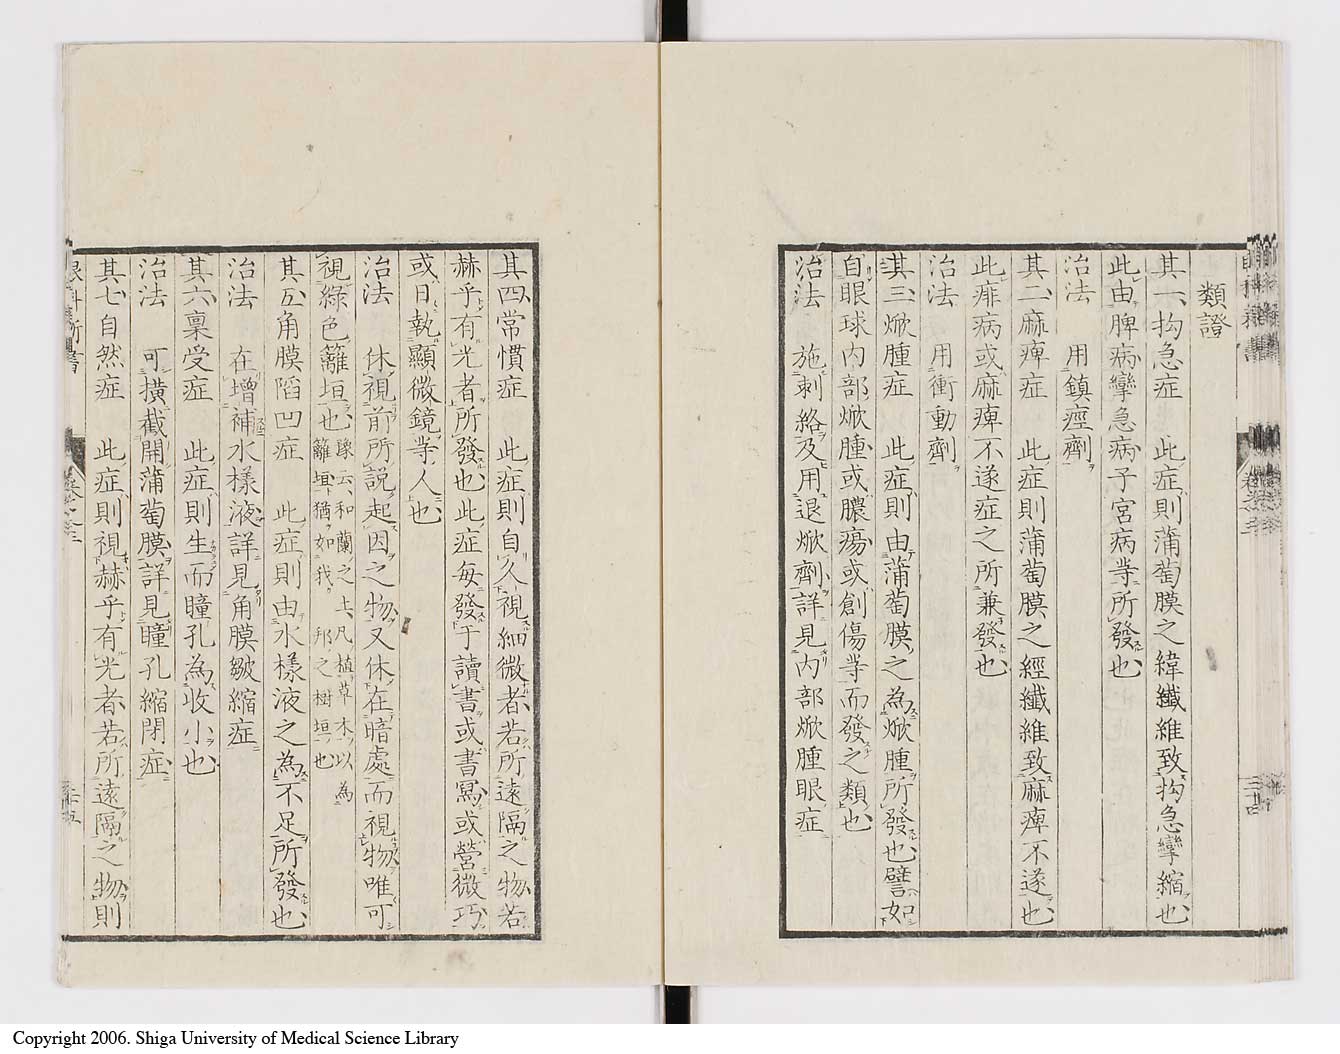 類證
其一、拘急症　此症則蒲萄膜之緯纖維致拘急攣縮也
此由脾病攣急病子宮病等所發也
治法　用鎮痙劑
其二、麻痺症　此症則蒲萄膜之經纖維致麻痺不遂也
此痱病或麻痺不遂症之所兼發也
治法　用衝動劑
其三、焮腫症　此症則由蒲萄膜之為焮腫所發也譬如
自眼球內部焮腫或膿瘍或創傷等而發之類也
治法　施刺絡及用退焮劑詳見內部焮腫眼症
其四、常慣症　此症則自久視細微者若所遠隔之物若
赫乎有光者所發也此症每發于讀書或書寫或營微巧
或日執顯微鏡等人也
治法　休視前所說起因之物又休在暗處而視物唯可
視綠色籬垣也 云和蘭之上凡植草木以為籬垣猶如我邦之樹垣也
其五、角膜陷凹症　此症則由水樣液之為不足所發也
治法　在增補水樣液詳見角膜皺縮症
其六、稟受症　此症則生而瞳孔為收小也
治法　可橫截開蒲萄膜詳見瞳孔縮閉症
其七、自然症　此症則視赫乎有光者若所遠隔之物則
Copyright 2006. Shiga University of Medical Science Library